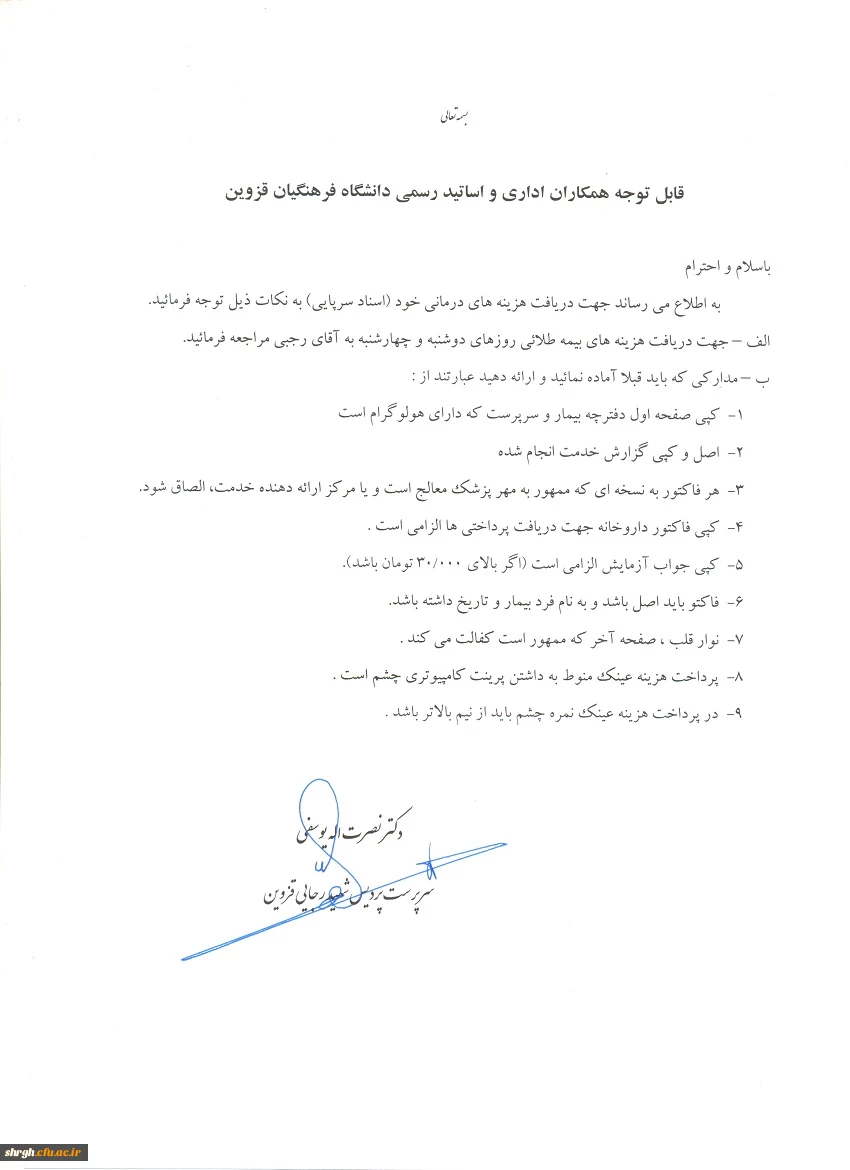 بسمه تعالی
قابل توجه همکاران اداری و اساتید رسمی دانشگاه فرهنگیان قزوین
باسلام و احترام
به اطلاع می رساند جهت دریافت هزینه های درمانی خود (اسناد سرپایی) به نکات ذیل توجه فرمائید.
الف – جهت دریافت هزینه های بیمه طلائی روزهای دوشنبه و چهارشنبه به آقای رجبی مراجعه فرمائید.
ب – مدارکی که باید قبلا آماده نمائید و ارائه دهید عبارتند از :
۱- کپی صفحه اول دفترچه بیمار و سرپرست که دارای هولوگرام است
۲- اصل و کپی گزارش خدمت انجام شده
۳- هر فاکتور به نسخه ای که ممهور به مهر پزشک معالج است و یا مرکز ارائه دهنده خدمت، الصاق شود.
۴- کپی فاکتور داروخانه جهت دریافت پرداختی ها الزامی است .
۵- کپی جواب آزمایش الزامی است (اگر بالای ۳۰/۰۰۰ تومان باشد).
۶- فاکتو باید اصل باشد و به نام فرد بیمار و تاریخ داشته باشد.
۷- نوار قلب ، صفحه آخر که ممهور است کفالت می کند .
۸- پرداخت هزینه عینک منوط به داشتن پرینت کامپیوتری چشم است .
۹- در پرداخت هزینه عینک نمره چشم باید از نیم بالاتر باشد .
دکتر نصرت اله یوسفی
سرپرست پردیس شهید رجایی قزوین
shrgh.cfu.ac.ir